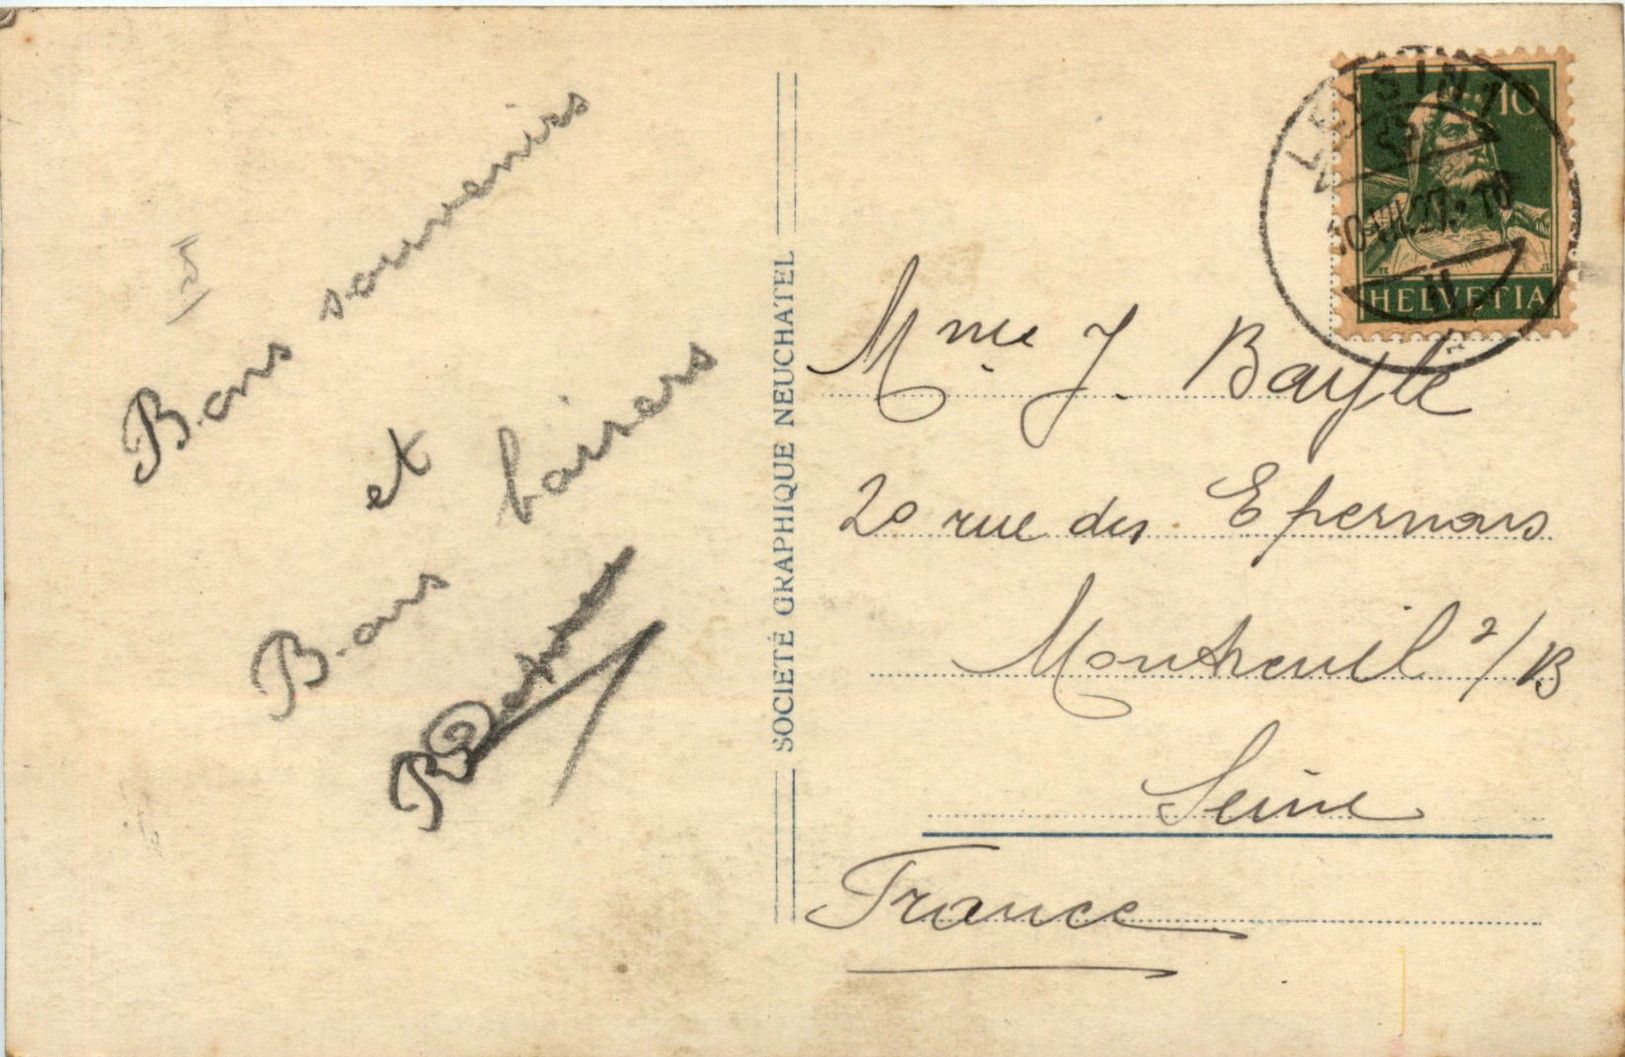 Bons souvenirs
et
Bons baisers
SOCIETÉ GRAPHIQUE NEUCHATEL
LEYSIN 1
10.VII.27.-16
10
HELVETIA
Mme J. Bayle
20 rue des Epernons
Montreuil s/B
Seine
France